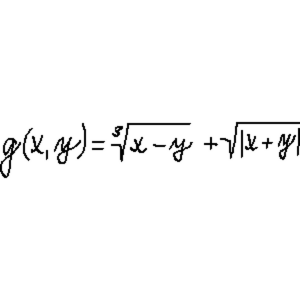 g(x, y) = ∛(x − y) + √|x + y|